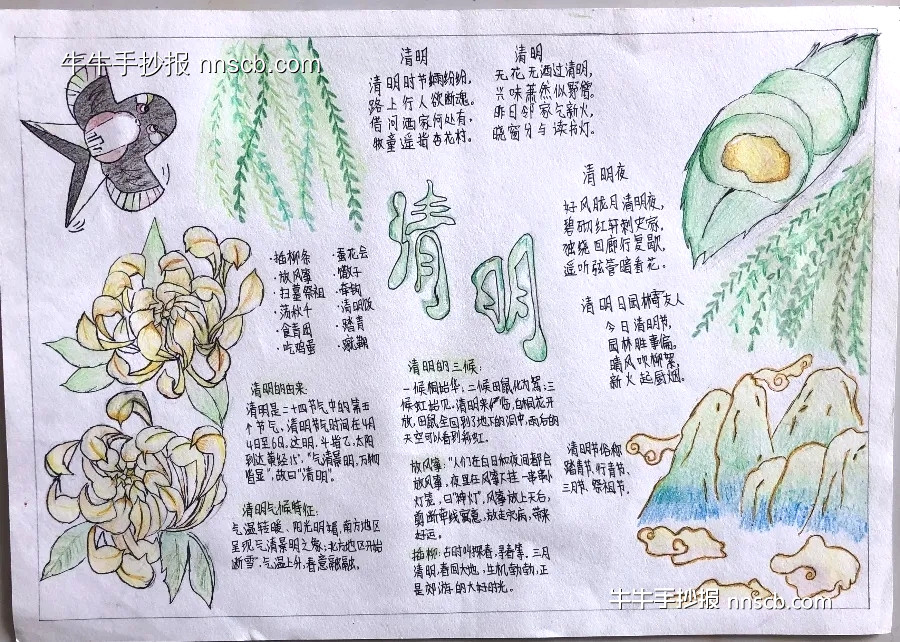 牛牛手抄报 nnscb.com
清明
清明时节雨纷纷,
路上行人欲断魂。
借问酒家何处有,
牧童遥指杏花村。
清明
无花无酒过清明,
兴味萧然似野僧。
昨日邻家乞新火,
晓窗分与读书灯。
清明夜
好风胧月清明夜,
碧砌红轩刺史家。
独绕回廊行复歇,
遥听弦管暗看花。
清明日园林寄友人
今日清明节,
园林胜事偏。
晴风吹柳絮,
新火起厨烟。
清明
·插柳条
·放风筝
·扫墓祭祖
·荡秋千
·食青团
·吃鸡蛋
·蚕花会
·馓子
·牵钩
·清明饭
·踏青
·蹴鞠
清明的由来:
清明是二十四节气中的第五
个节气、清明节气时间在4月
4日至6日,这明,斗指乙,太阳
到达黄经15°,"气清景明,万物
皆显",故曰"清明"。
清明气候特征:
气温转暖、阳光明媚,南方地区
呈现气清景明之象;北方地区开始
断雪、气温上升,春意融融。
清明的三候:
一候桐始华;二候田鼠化为鴽;三
候虹始见,清明来临,白桐花开
放,田鼠全回到了地下的洞中,雨后的
天空可以看到彩虹。
放风筝:"人们在白日和夜间都会
放风筝,夜里在风筝下挂一串串小
灯笼,曰"神灯",风筝放上天后,
剪断牵线寓意,放走灾病,带来
好运。
插柳:古时叫探春,寻春等。三月
清明,春回大地,生机勃勃,正
是郊游的大好时光。
清明节俗称
踏青节、行青节、
三月节、祭祖节、
牛牛手抄报 nnscb.com